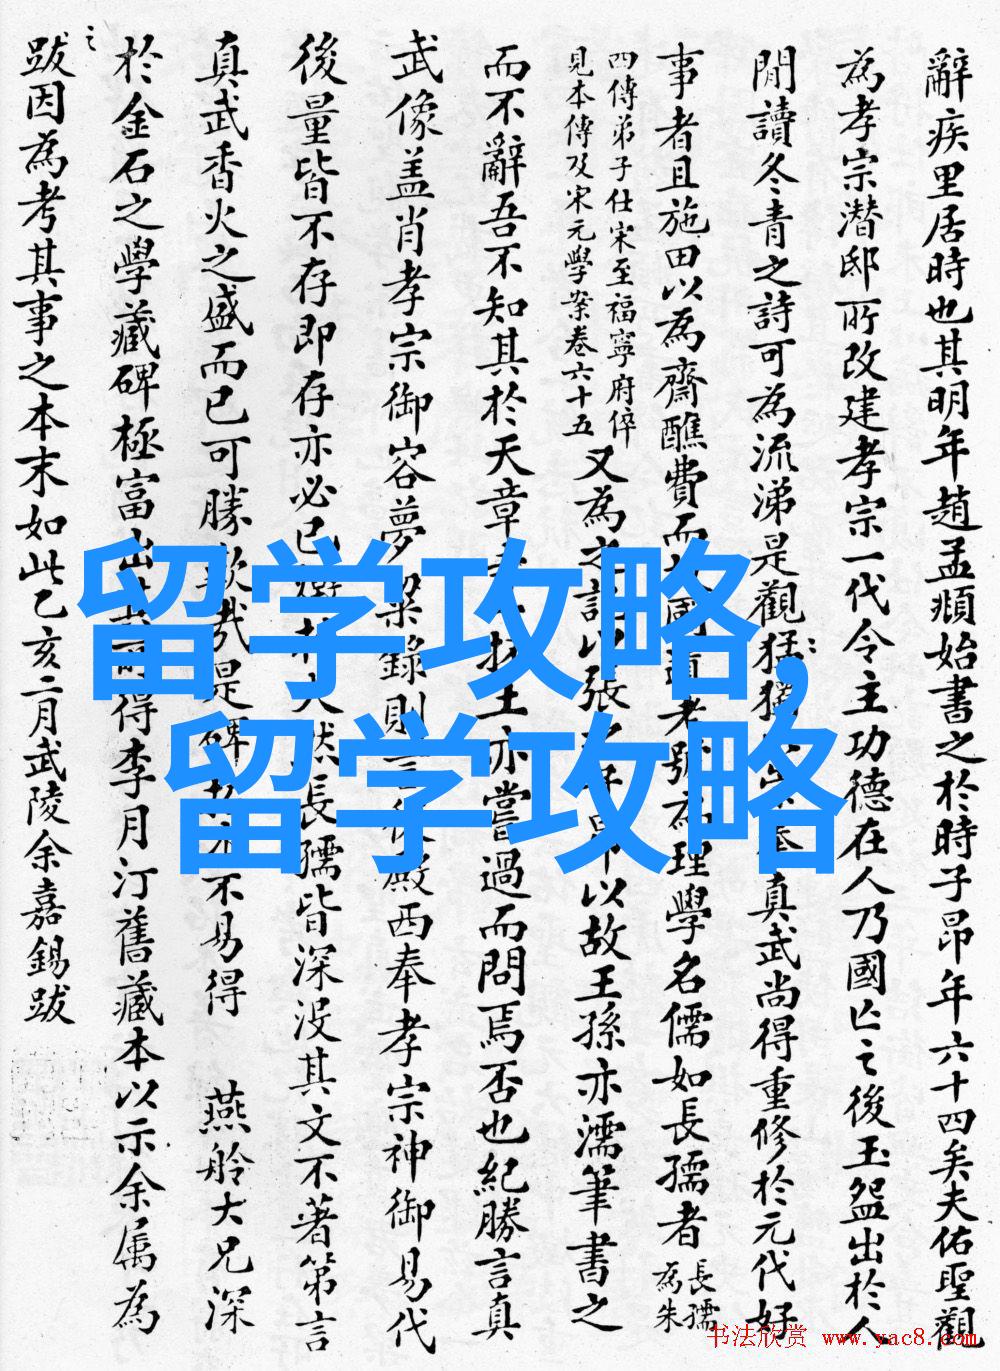 辭疾里居時也其明年趙孟頫始書之於時子昂年六十四矣夫佑聖觀
為孝宗潛邸所改建孝宗一代令主功德在人乃國亡之後玉盌出於人
閒讀冬青之詩可為流涕是觀猶真武尚得重修於元代好
事者且施田以為齋醮費而號為理學名儒如長孺者
長孺
為朱
四傳弟子仕宋至福寧府倅
見本傳及宋元學案卷六十五
又為之記以張以故王孫亦濡筆書之
而不辭吾不知其於天章亦嘗過而問焉否也紀勝言真
武像盖肖孝宗御容夢粱錄則殿西奉孝宗神御易代
後量皆不存即存亦必已然長孺皆深没其文不著第言
真武香火之盛而已可勝歎哉是碑不易得 燕舲大兄深
於金石之學藏碑極富得李月汀舊藏本以示余属為
跋因為考其事之本末如此乙亥二月武陵余嘉錫跋
留学攻略,
留学攻略
书法欣赏 www.yac8.com